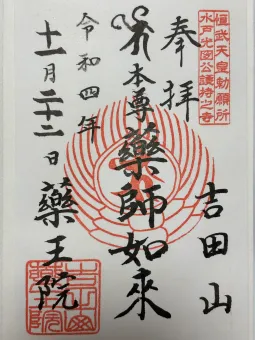 桓武天皇勅願所
水戸光圀公護持之寺
吉田山
奉拝
本尊藥師如來
令和四年
十一月二十二日
藥王院